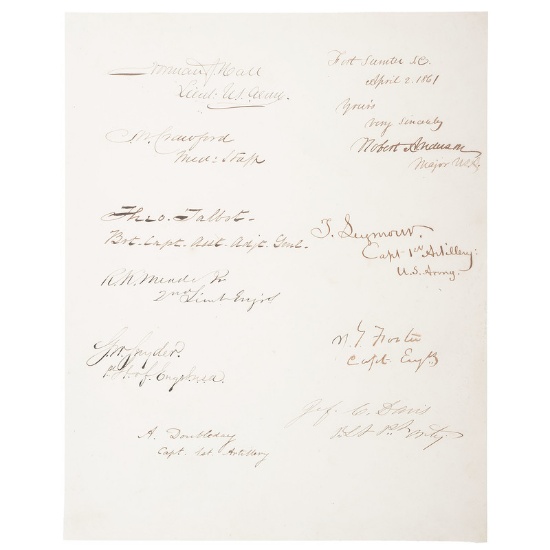 Norman J. Hall
Lieut. U.S. Army.
S.W. Crawford
Med: Staff
Theo. Talbot.
Bvt. Capt. Asst. Adjt. Genl.
R.K. Meade Jr
2nd Lieut Engrs
G.W. Snyder.
Lt. of Engineers.
A. Doubleday
Capt 1st Artillery
Fort Sumter S.C.
April 2. 1861
Yours
very sincerely
Robert Anderson
Major U.S.A.
T. Seymour.
Capt 1st Artillery.
U.S. Army.
J.G. Foster
Capt Engrs
Jef. C. Davis
1st Arty.